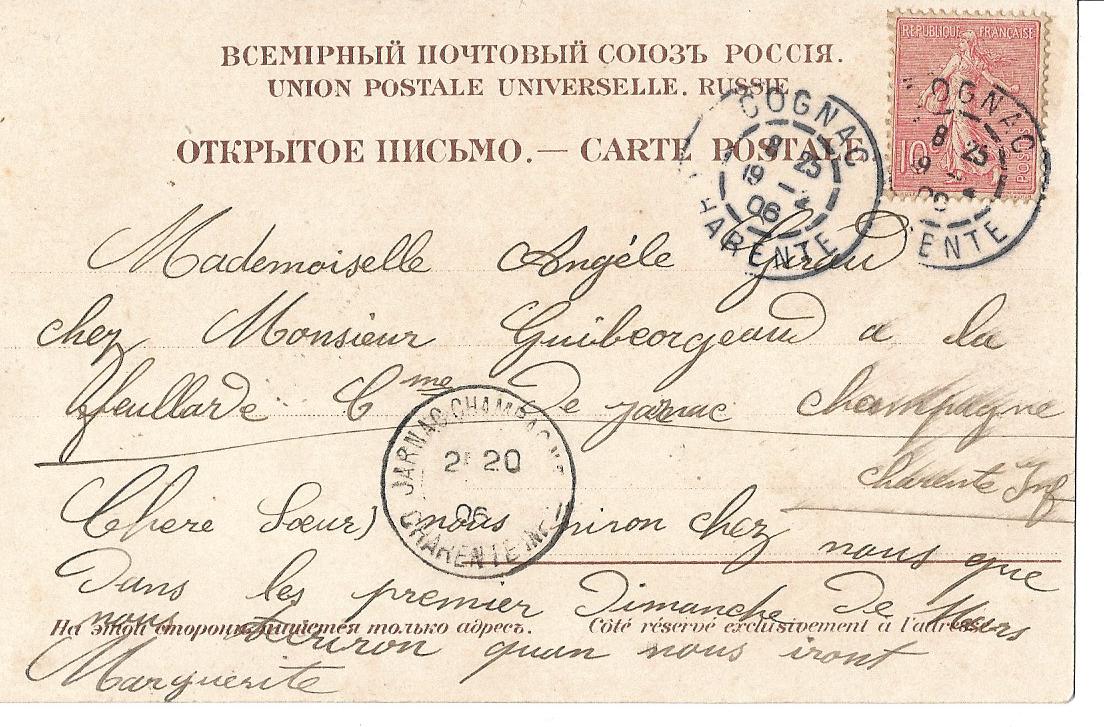 ВСЕМІРНЫЙ ПОЧТОВЫЙ СОЮЗЪ РОССІЯ.
UNION POSTALE UNIVERSELLE. RUSSIE
ОТКРЫТОЕ ПИСЬМО. — CARTE POSTALE
REPUBLIQUE FRANÇAISE
10 POSTES
COGNAC
8 25
19
06
CHARENTE
OGNAC
8 25
19
ENTE
Mademoiselle Angéle Giraud
chez Monsieur Guibeorgeaud a la
feullarde Cme De jarnac champagne
charente Inf
JARNAC-CHAMPAGNE
2E 20
06
CHARENTE INF.
Chere Sœur) nous niron chez nous que
Dans les premier Dimanche de Mars
nous tecriron quan nous iront
Marguerite
На этой сторонѣ пишется только адресъ.
Côté réservé exclusivement à l'adresse.